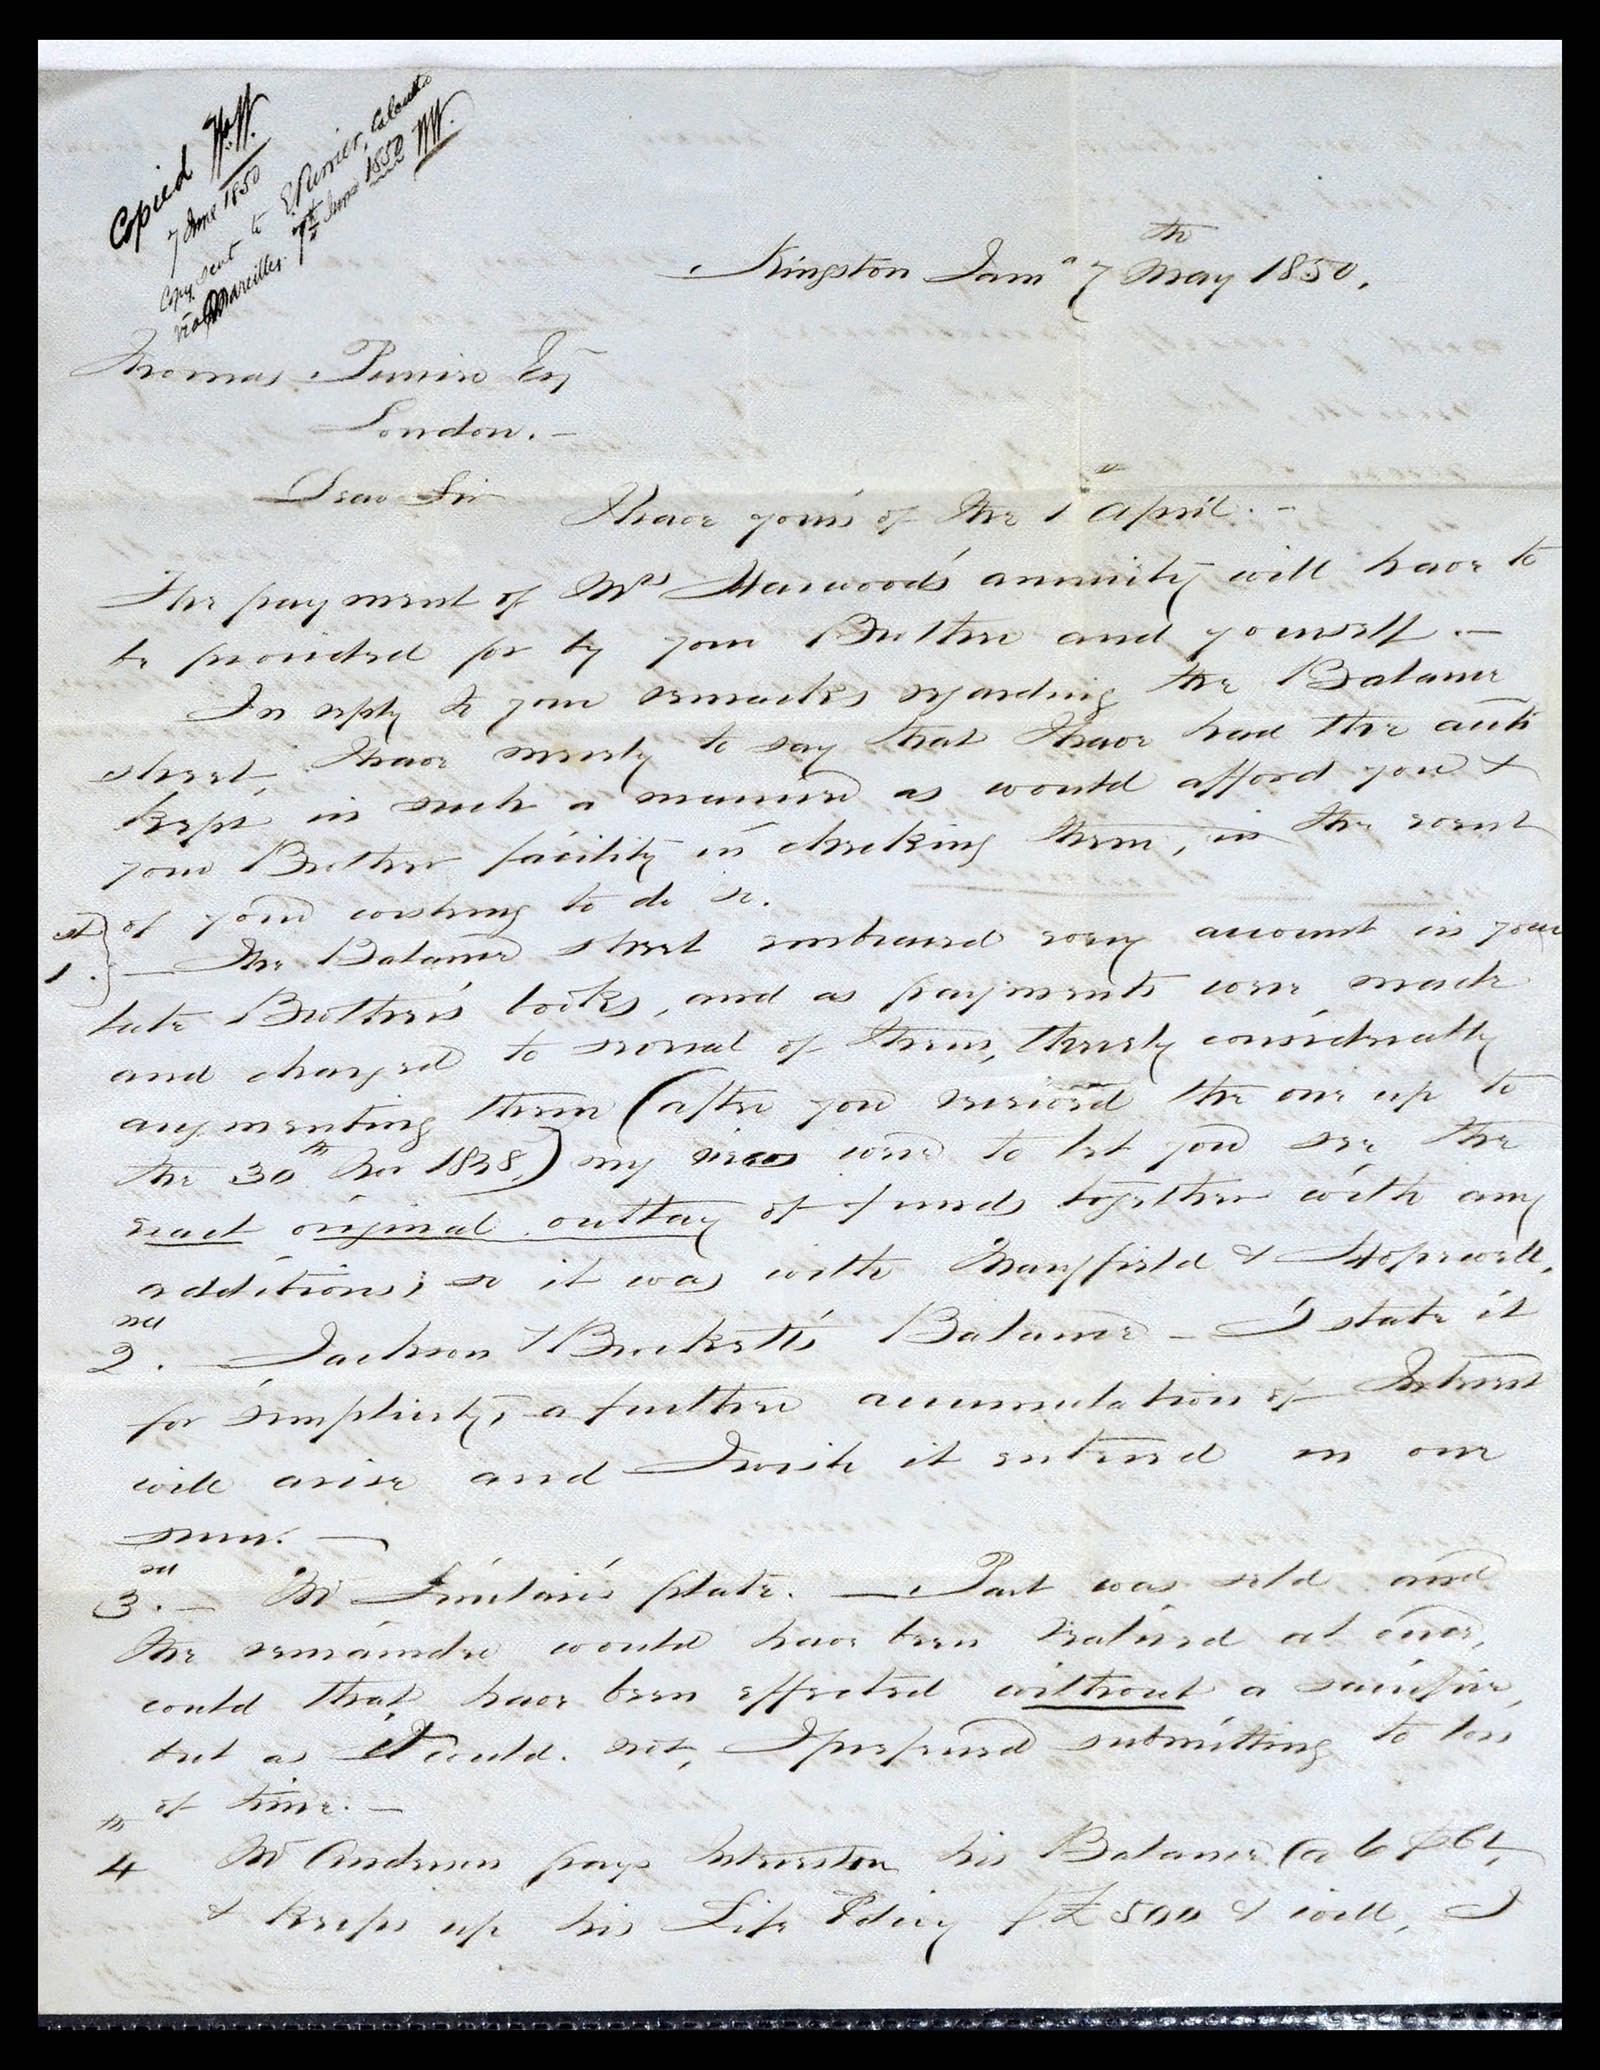 Copied W.W.
7 June 1850
Copy sent to E Purrier, Calcutta
via Marseilles. 7th June 1850 WW.
Kingston Jama 7th May 1850.
Thomas Purrier Esq
London. -
Dear Sir I have yours of the 1st April. -
The payment of Mrs Harwood's annuity will have to
be provided for by your Brother and yourself. -
In reply to your remarks regarding the Balance
sheet, I have merely to say that I have had the accts
kept in such a manner as would afford you &
your Brother facility in checking them, in the event
of your wishing to do so.
1st. - The Balance sheet embraced every account in your
late Brother's books, and as payments were made
and charged to several of them, thereby considerably
augmenting them (after you received the one up to
the 30th Nov 1848,) my views were to let you see the
exact original outlay of funds together with any
additions; so it was with Mayfield & Hopewell.
2nd. - Jackson & Brockett's Balance - I state it
for simplicity, a further accumulation of Interest
will arise and I wish it entered in one
sum. -
3rd. - Mr Sinclair's plate. - Part was sold and
the remainder would have been realised at once,
could that have been effected without a sacrifice,
but as it could not, I preferred submitting to loss
of time. -
4th Mr Anderson pays Interest on his Balance @ 6 pCt,
& keeps up his Life Policy f £500 & will, I